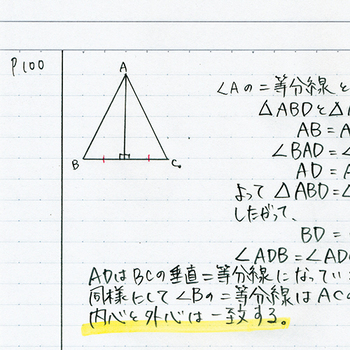 P100
A
B
C
∠Aの二等分線と
△ABDと△A
AB=A
∠BAD=∠
AD=A
よって△ABD=∠
したがって、
BD=
∠ADB=∠AD
ADはBCの垂直二等分線になってい
同様にして∠Bの二等分線はACの
内心と外心は一致する。